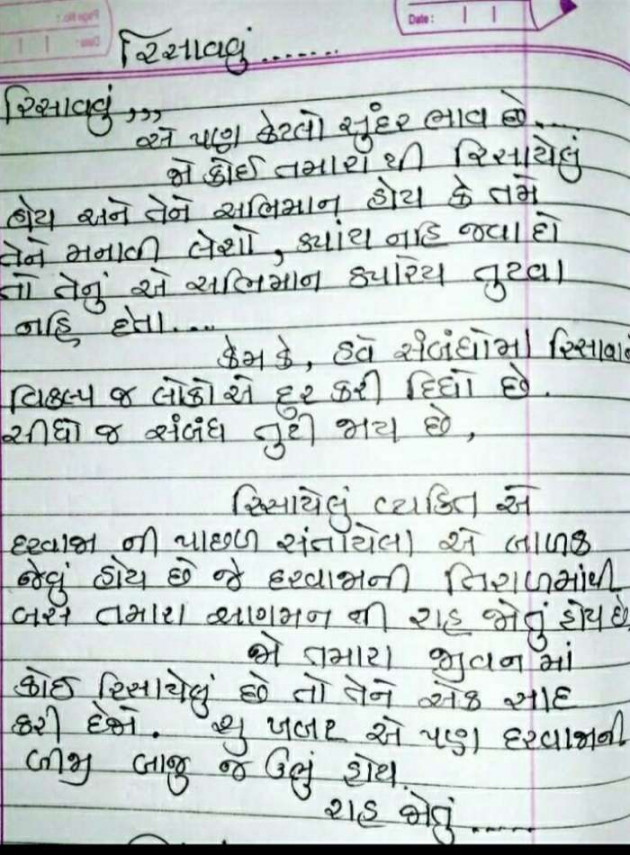 Date:
રિસાવવું.......
રિસાવવું,,,
એ પણ કેટલો સુંદર ભાવ છે....
જો કોઈ તમારા થી રિસાયેલું
હોય અને તેને અભિમાન હોય કે તમે
તેને મનાવી લેશો, ક્યાંય નહિ જવા દો
તો તેનું એ અભિમાન ક્યારેય તુટવા
નહિ દેતા....
કેમ કે, હવે સંબંધોમાં રિસાવાનો
વિકલ્પ જ લોકોએ દુર કરી દિધો છે.
સીધો જ સંબંધ તુટી જાય છે,
રિસાયેલું વ્યકિત એ
દરવાજા ની પાછળ સંતાયેલા એ બાળક
જેવું હોય છે જે દરવાજાની તિરાળમાંથી
બસ તમારા આગમન ની રાહ જોતું હોય છે
જો તમારા જીવન માં
કોઈ રિસાયેલું છે તો તેને એક સાદ
કરી દેજો. શુ ખબર એ પણ દરવાજાની
બીજી બાજુ જ ઉભું હોય.
રાહ જોતું......